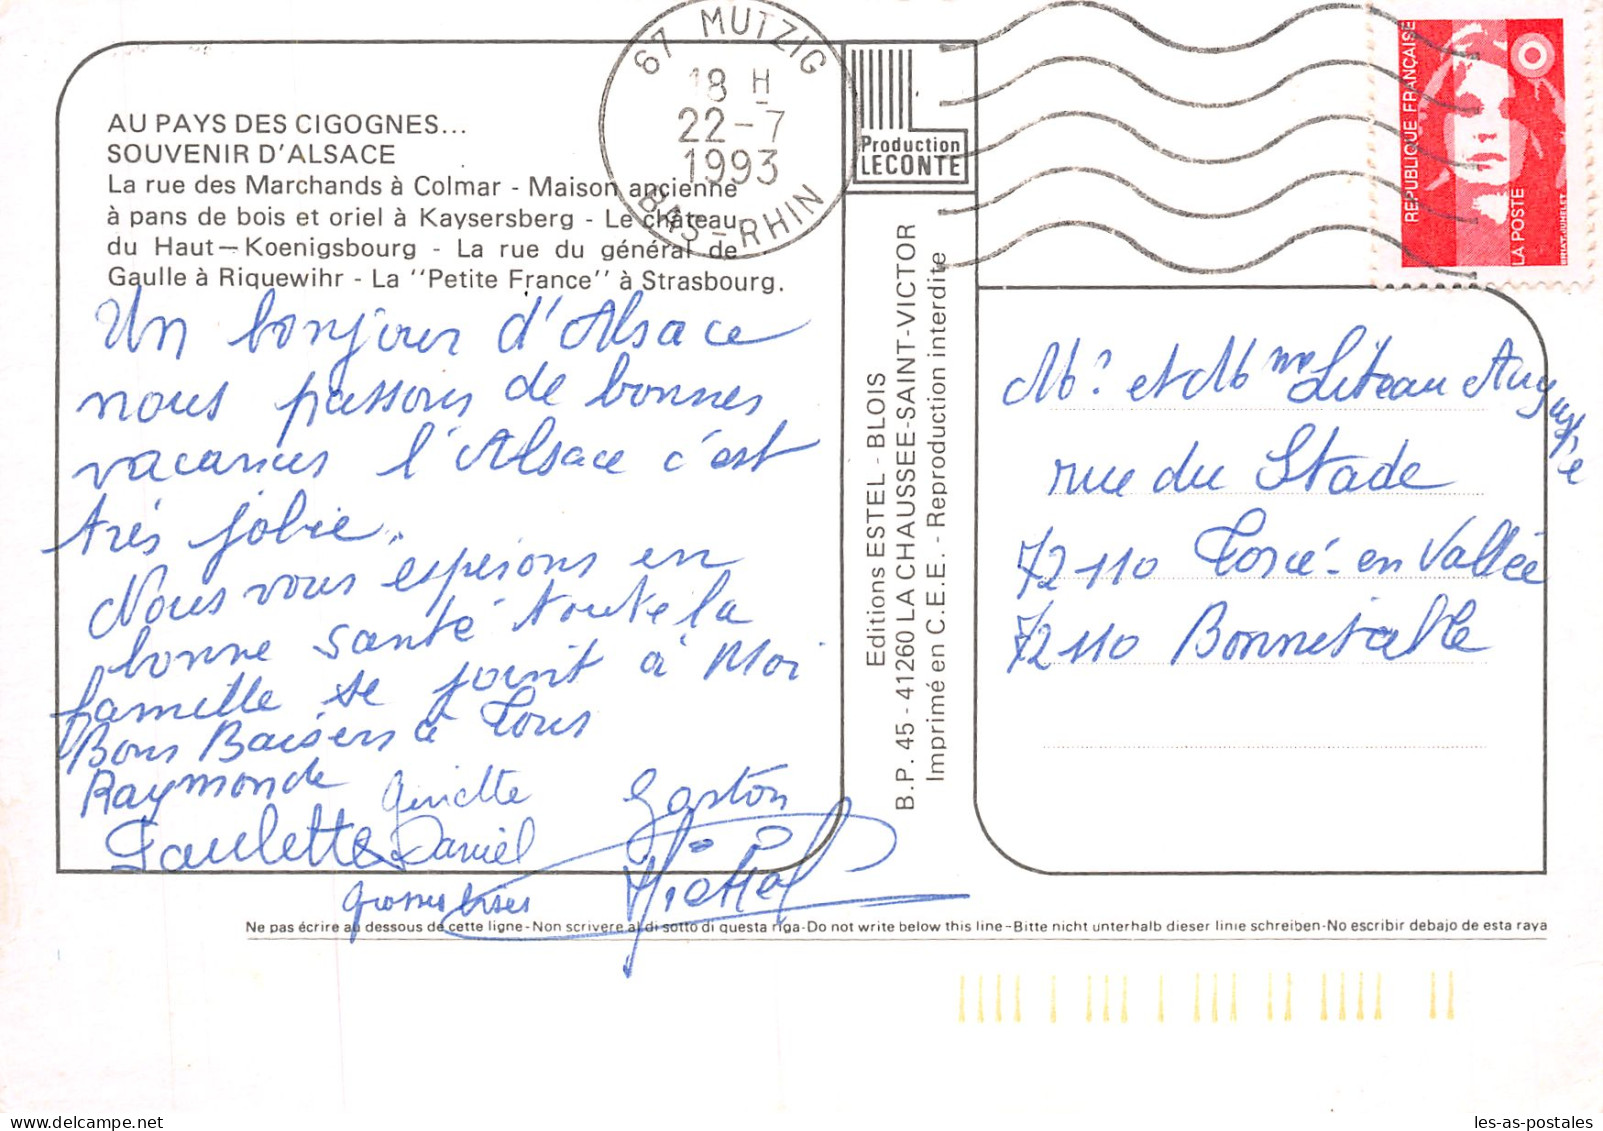 67 MUTZIG
18 H
22-7
1993
BAS-RHIN
REPUBLIQUE FRANÇAISE
LA POSTE
BRIAT.JUMELET
AU PAYS DES CIGOGNES...
SOUVENIR D'ALSACE
La rue des Marchands à Colmar - Maison ancienne
à pans de bois et oriel à Kaysersberg - Le château
du Haut-Koenigsbourg - La rue du général de
Gaulle à Riquewihr - La "Petite France" à Strasbourg.
Un bonjour d'Alsace
nous passons de bonnes
vacances l'Alsace c'est
très jolie.
Nous vous esperons en
bonne santé toute la
famille se joint à Moi
Bons Baisers a Tous
Raymonde Ginette Gaston
Paulette Daniel Michel
grosses bises
Production
LECONTE
Editions ESTEL - BLOIS
B.P. 45 - 41260 LA CHAUSSEE-SAINT-VICTOR
Imprimé en C.E.E. - Reproduction interdite
Mr et Mme Liteau Auguste
rue du Stade
72110 Torcé-en Vallée
72110 Bonnetable
Ne pas écrire au dessous de cette ligne-Non scrivere al di sotto di questa riga-Do not write below this line-Bitte nicht unterhalb dieser linie schreiben-No escribir debajo de esta raya
les-as-postales